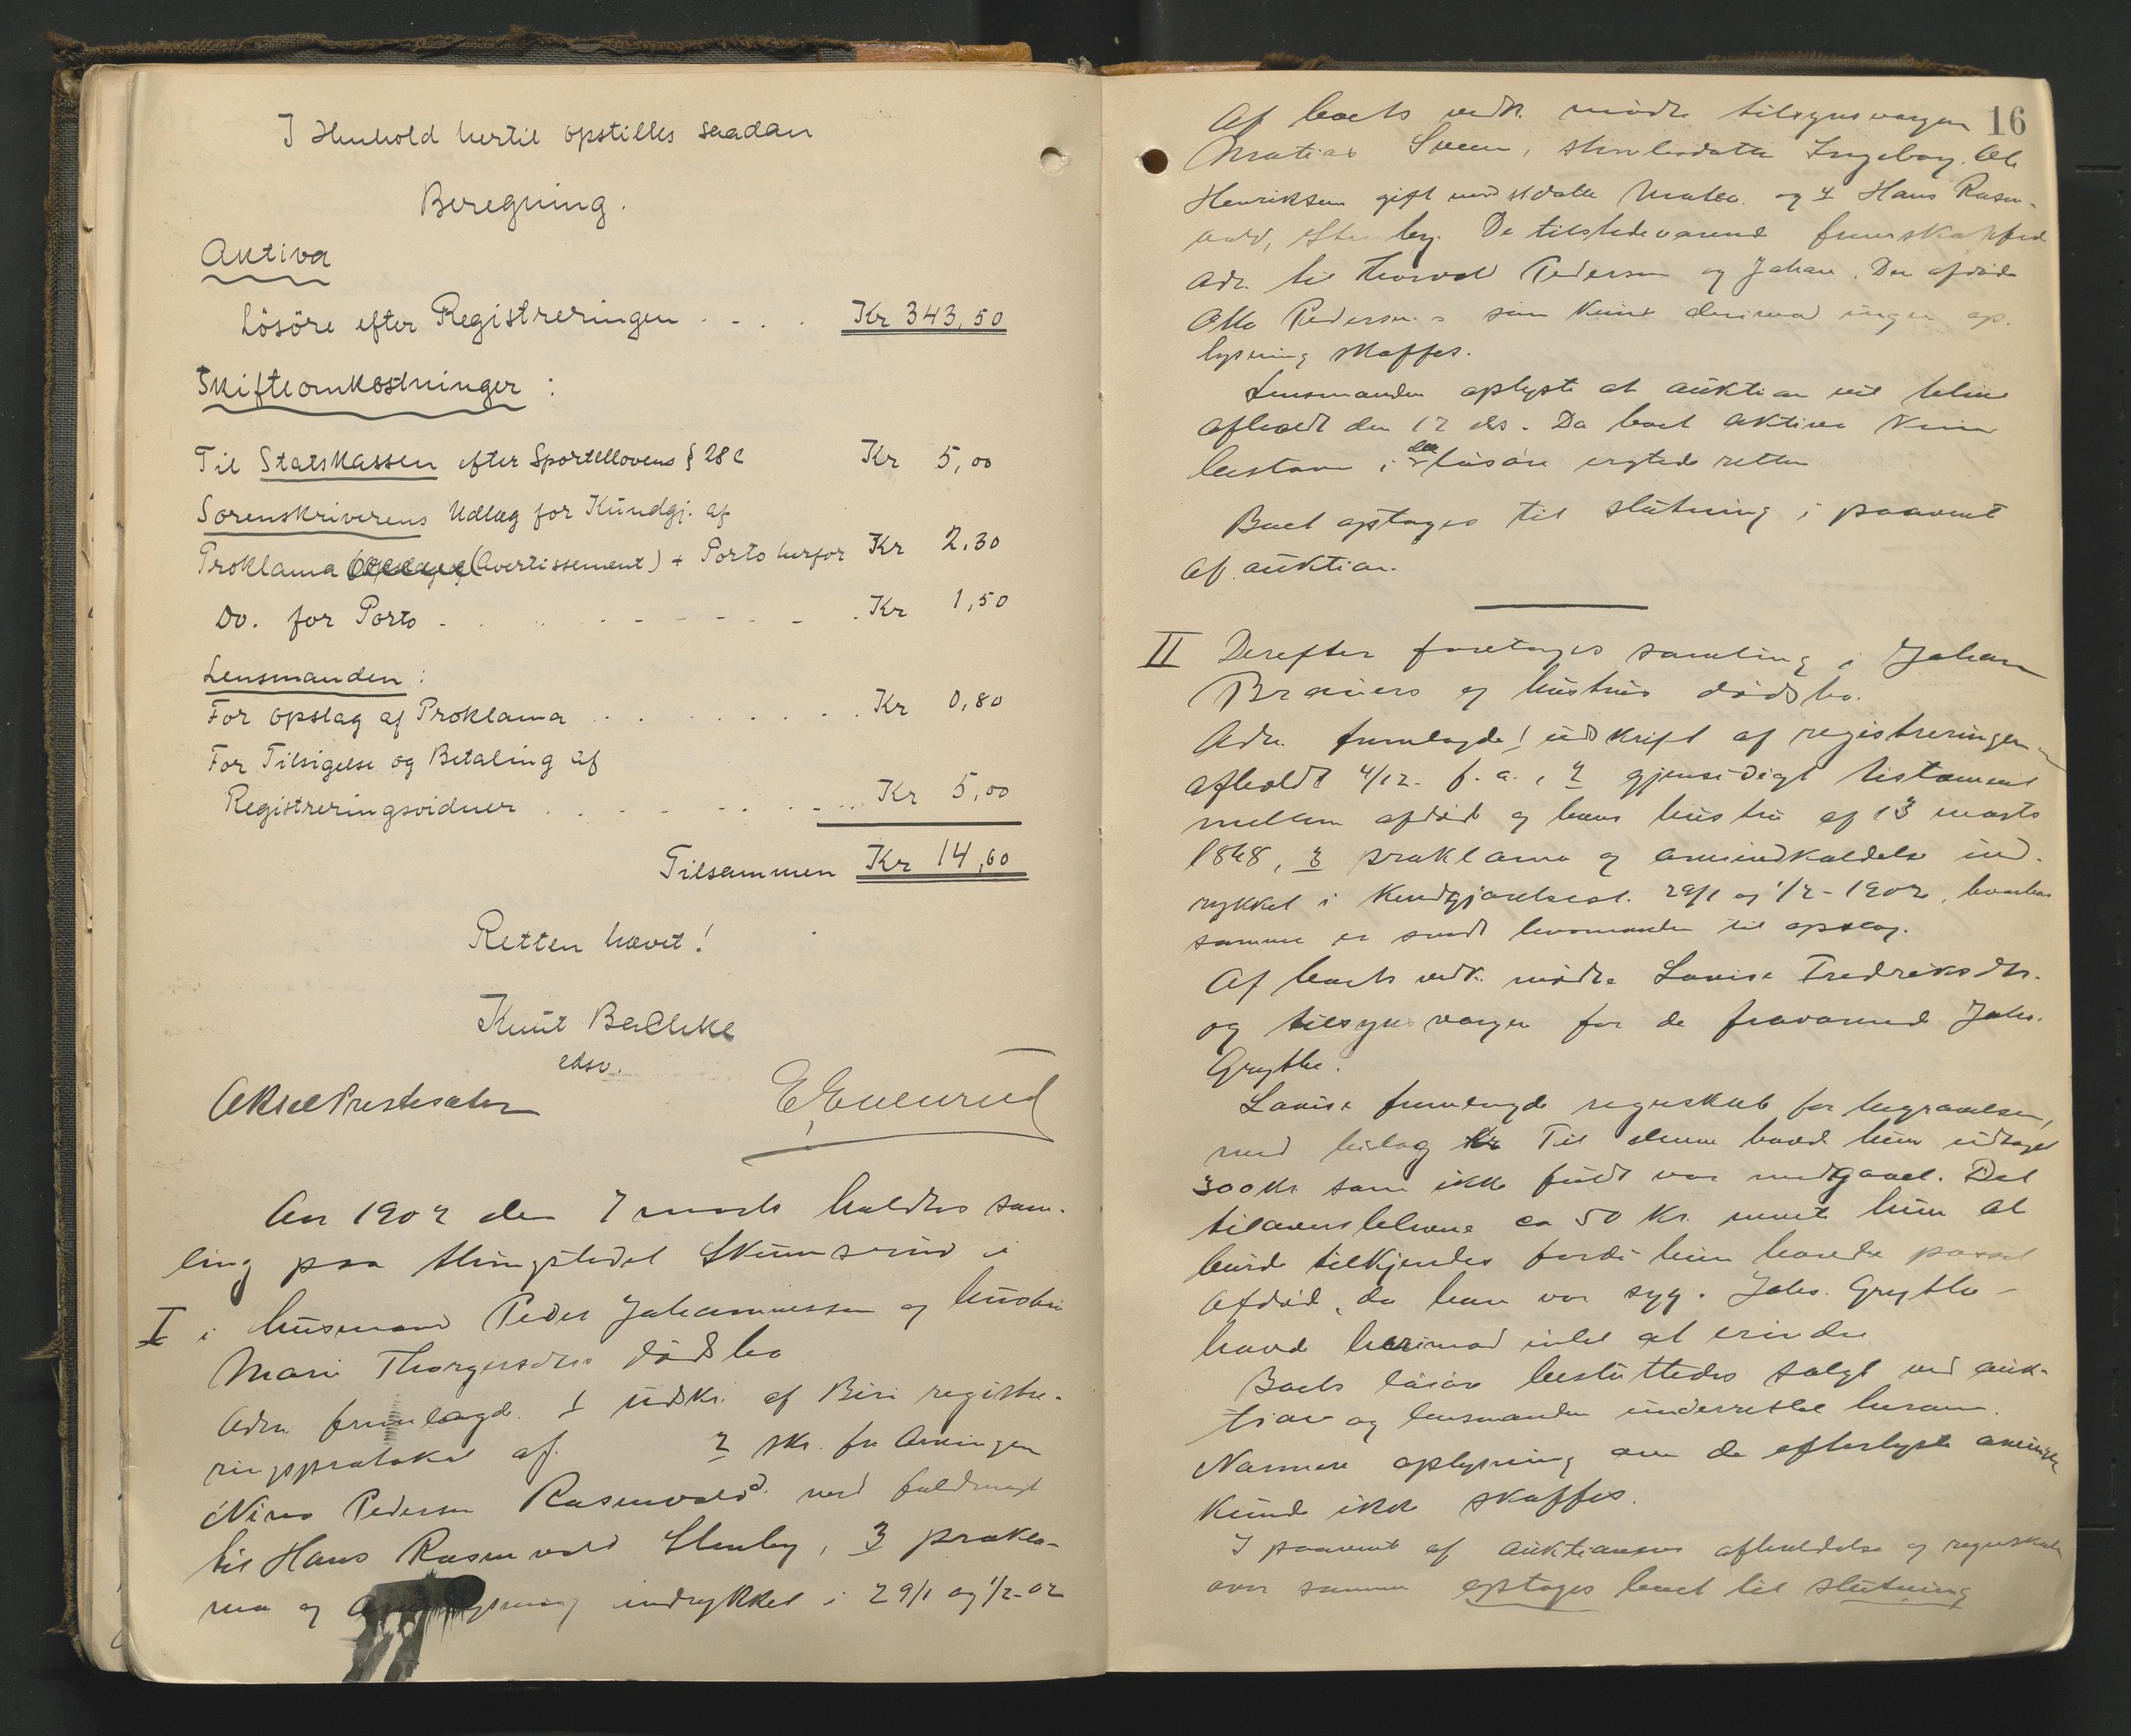 I Henhold hertil opstilles saadan
Beregning.
Aktiva
Lösöre efter Registreringen . . . . Kr 343,50
Skifteomkostninger :
Til Statskassen efter Sportellovens § 28 c Kr 5,00
Sorenskriverens Udlæg for Kundgj. af
Proklama (Avertissement) + Porto herfor Kr 2.30
Do. for Porto Kr 1,50
Lensmanden :
For opslag af Proklama Kr 0,80
For Tilsigelse og Betaling af
Registreringsvidner Kr 5,00
Tilsammen Kr 14,60
Retten hævet!
Knut
edsv.
Aksel
Aar 1902 den 7 marts holdtes sam-
ling paa thingstedet i
I i husmand Peder Johannessen og hustru
Mari dødsbo
Adm. fremlagde 1 udskr. af Biri registre-
ringsprotokol af 2 skr. fra Arvingen
Pedersen Rasmvold med fuldmagt
til Hans Rasmvold Stenby, 3 prokla-
ma og indrykket i 29/1 og 1/2-02
16
Af boets vedk. mødte tilsynsvergen
Matias Sveen, Ingeborg. Ole
Henriksen gift med Matea og Hans Rasm-
vold, Stenby. De tilstedeværende fremskaffed
adr. til Thorvald Pedersen og Johan. Den afdøde
Otto Pedersens søn kunde derimod ingen op-
lysning skaffes.
Lensmanden oplyste at auktion vil blive
afholdt den 12 ds. Da boets aktiva kun
bestaar i løsøre retten
Boet optages til slutning i paavente
af auktion.
II Derefter foretages samling i Johan
og hustrus dødsbo.
Adm. fremlagde 1 udskrift af registreringen
afholdt 4/12 f. a., 2 gjensidigt testament
mellem afdød og hans hustru af 13 marts
, 3 proklama og arveindkaldelse ind-
rykket i Kundgjørelsest. 29/1 og 1/2-1902, hvorhos
samme er sendt lensmanden til opslag.
Af boets vedk. mødte Lovise Fredriksdtr.
og tilsynsvergen for de fraværende Johs.
Grythe.
Lovise fremlagde regnskab for begravelsen,
med bilag Til denne havde hun udtaget
300 Kr som ikke fuldt var medgaaet. Det
tiloversblevne ca 50 Kr. mente hun at
burde tilkjendes fordi hun havde passet
Afdød, da han var syg. Johs. Grythe
havde herimod intet at erindre
Boets løsøre besluttedes solgt ved auk-
tion og lensmanden underrettet herom.
Nærmere oplysning om de efterlyste arvinger
kunde ikke skaffes.
I paavente af auktionens afholdelse og regnskab
over samme optages boet til slutning